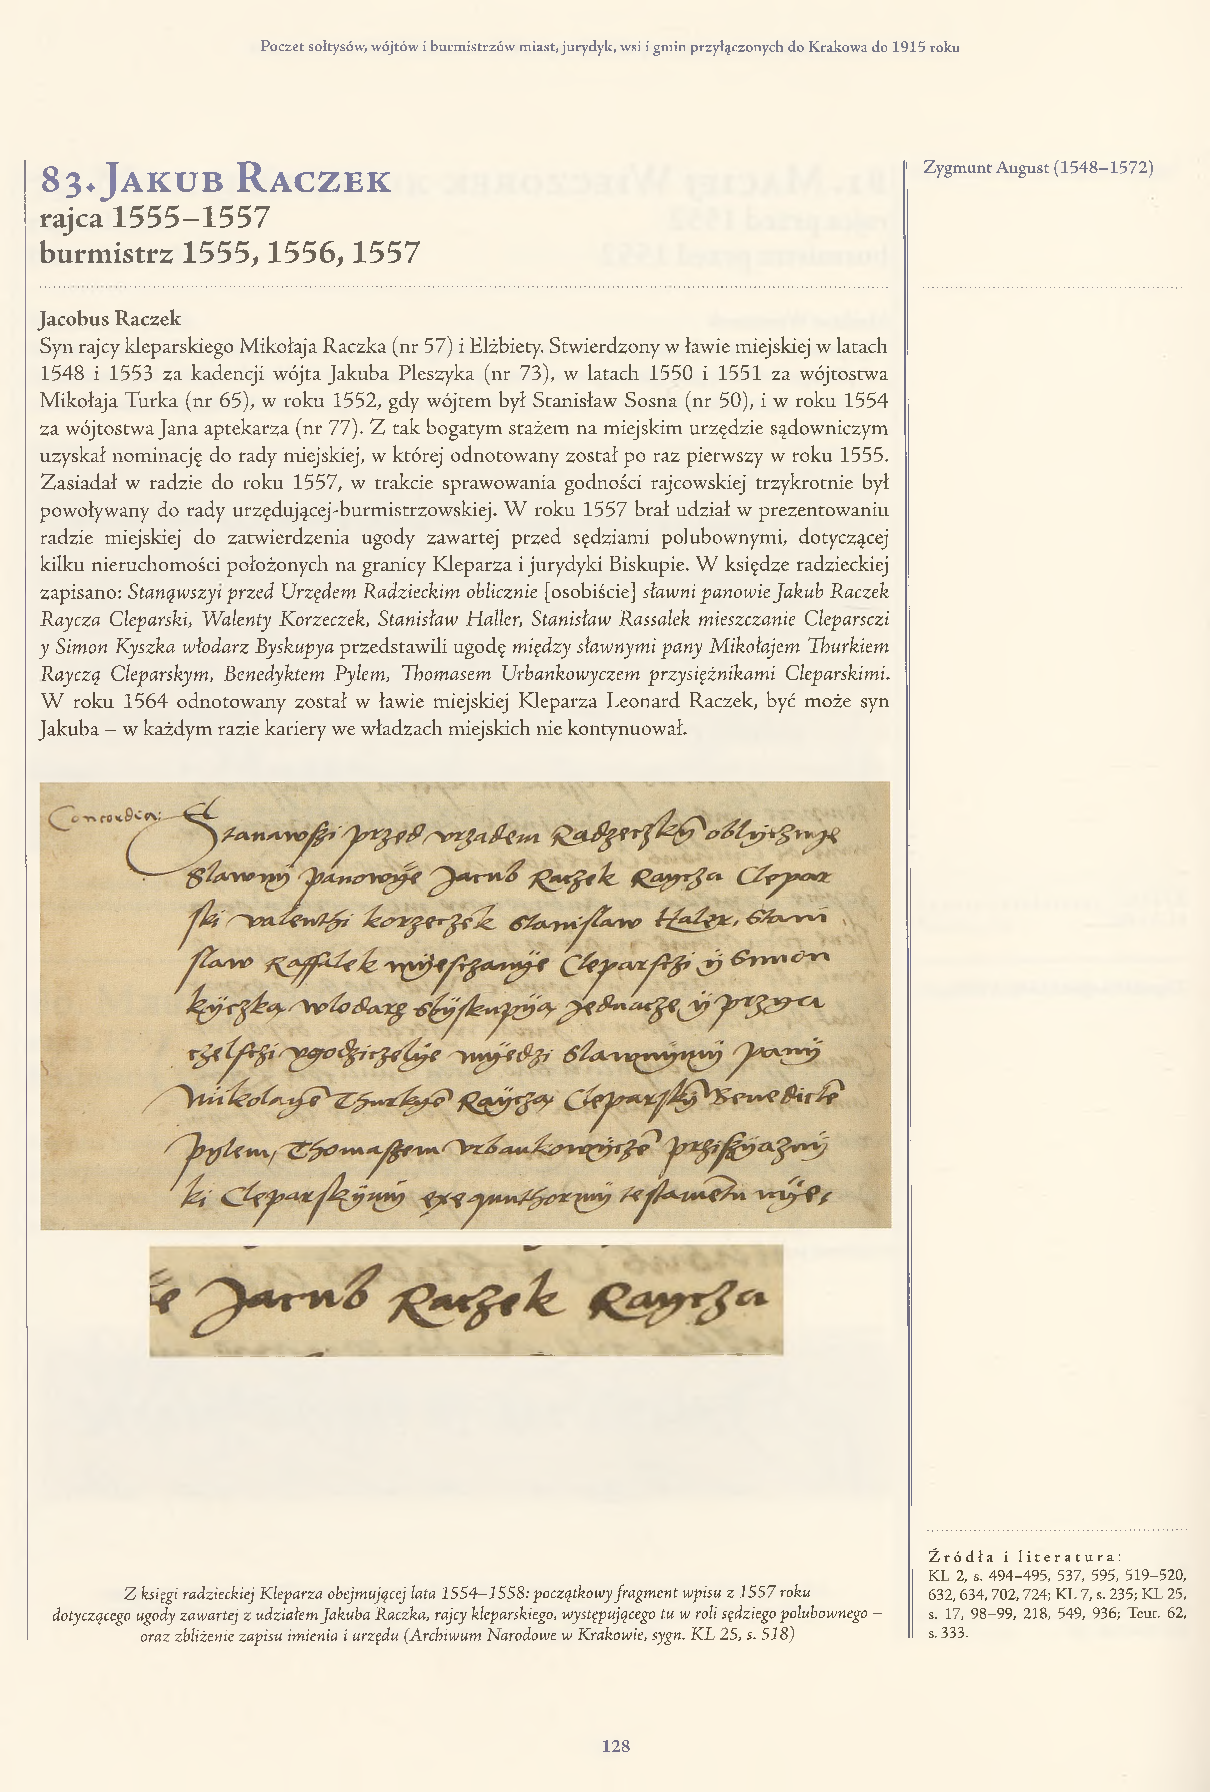 Poczet sołtysów, wójtów i burmistrzów miast, jurydyk, wsi i gmin przyłączonych do Krakowa do 1915 roku
83. Jakub Raczek
rajca 1555–1557
burmistrz 1555, 1556, 1557
Zygmunt August (1548–1572)
Jacobus Raczek
Syn rajcy kleparskiego Mikołaja Raczka (nr 57) i Elżbiety. Stwierdzony w ławie miejskiej w latach
1548 i 1553 za kadencji wójta Jakuba Pleszyka (nr 73), w latach 1550 i 1551 za wójtostwa
Mikołaja Turka (nr 65), w roku 1552, gdy wójtem był Stanisław Sosna (nr 50), i w roku 1554
za wójtostwa Jana aptekarza (nr 77). Z tak bogatym stażem na miejskim urzędzie sądowniczym
uzyskał nominację do rady miejskiej, w której odnotowany został po raz pierwszy w roku 1555.
Zasiadał w radzie do roku 1557, w trakcie sprawowania godności rajcowskiej trzykrotnie był
powoływany do rady urzędującej-burmistrzowskiej. W roku 1557 brał udział w prezentowaniu
radzie miejskiej do zatwierdzenia ugody zawartej przed sędziami polubownymi, dotyczącej
kilku nieruchomości położonych na granicy Kleparza i jurydyki Biskupie. W księdze radzieckiej
zapisano: Stanąwszyi przed Urzędem Radzieckim oblicznie [osobiście] sławni panowie Jakub Raczek
Raycza Cleparski, Walenty Korzeczek, Stanisław Haller, Stanisław Rassalek mieszczanie Cleparsczi
y Simon Kyszka włodarz Byskupya przedstawili ugodę między sławnymi pany Mikołajem Thurkiem
Rayczą Cleparskym, Benedyktem Pylem, Thomasem Urbankowyczem przysiężnikami Cleparskimi.
W roku 1564 odnotowany został w ławie miejskiej Kleparza Leonard Raczek, być może syn
Jakuba – w każdym razie kariery we władzach miejskich nie kontynuował.
Concordia:
przed vrzadem oblycznye
Slawny panowye Jacub Raczek Raycza Clepar
ski valenthi korzeczek Stanislaw Haler, Stani
slaw Raffalek Cleparsczi ÿ Simon
kÿczka wlodarz
slawnÿmÿ panÿ
Raÿcza
pylem, Thomaszem
ki Cleparskÿmÿ
Jacub Raczek Raycza
Z księgi radzieckiej Kleparza obejmującej lata 1554–1558: początkowy fragment wpisu z 1557 roku
dotyczącego ugody zawartej z udziałem Jakuba Raczka, rajcy kleparskiego, występującego tu w roli sędziego polubownego –
oraz zbliżenie zapisu imienia i urzędu (Archiwum Narodowe w Krakowie, sygn. KL 25, s. 518)
Źródła i literatura:
KL 2, s. 494–495, 537, 595, 519–520,
632, 634, 702, 724; KL 7, s. 235; KL 25,
s. 17, 98–99, 218, 549, 936; Teut. 62,
s. 333.
128